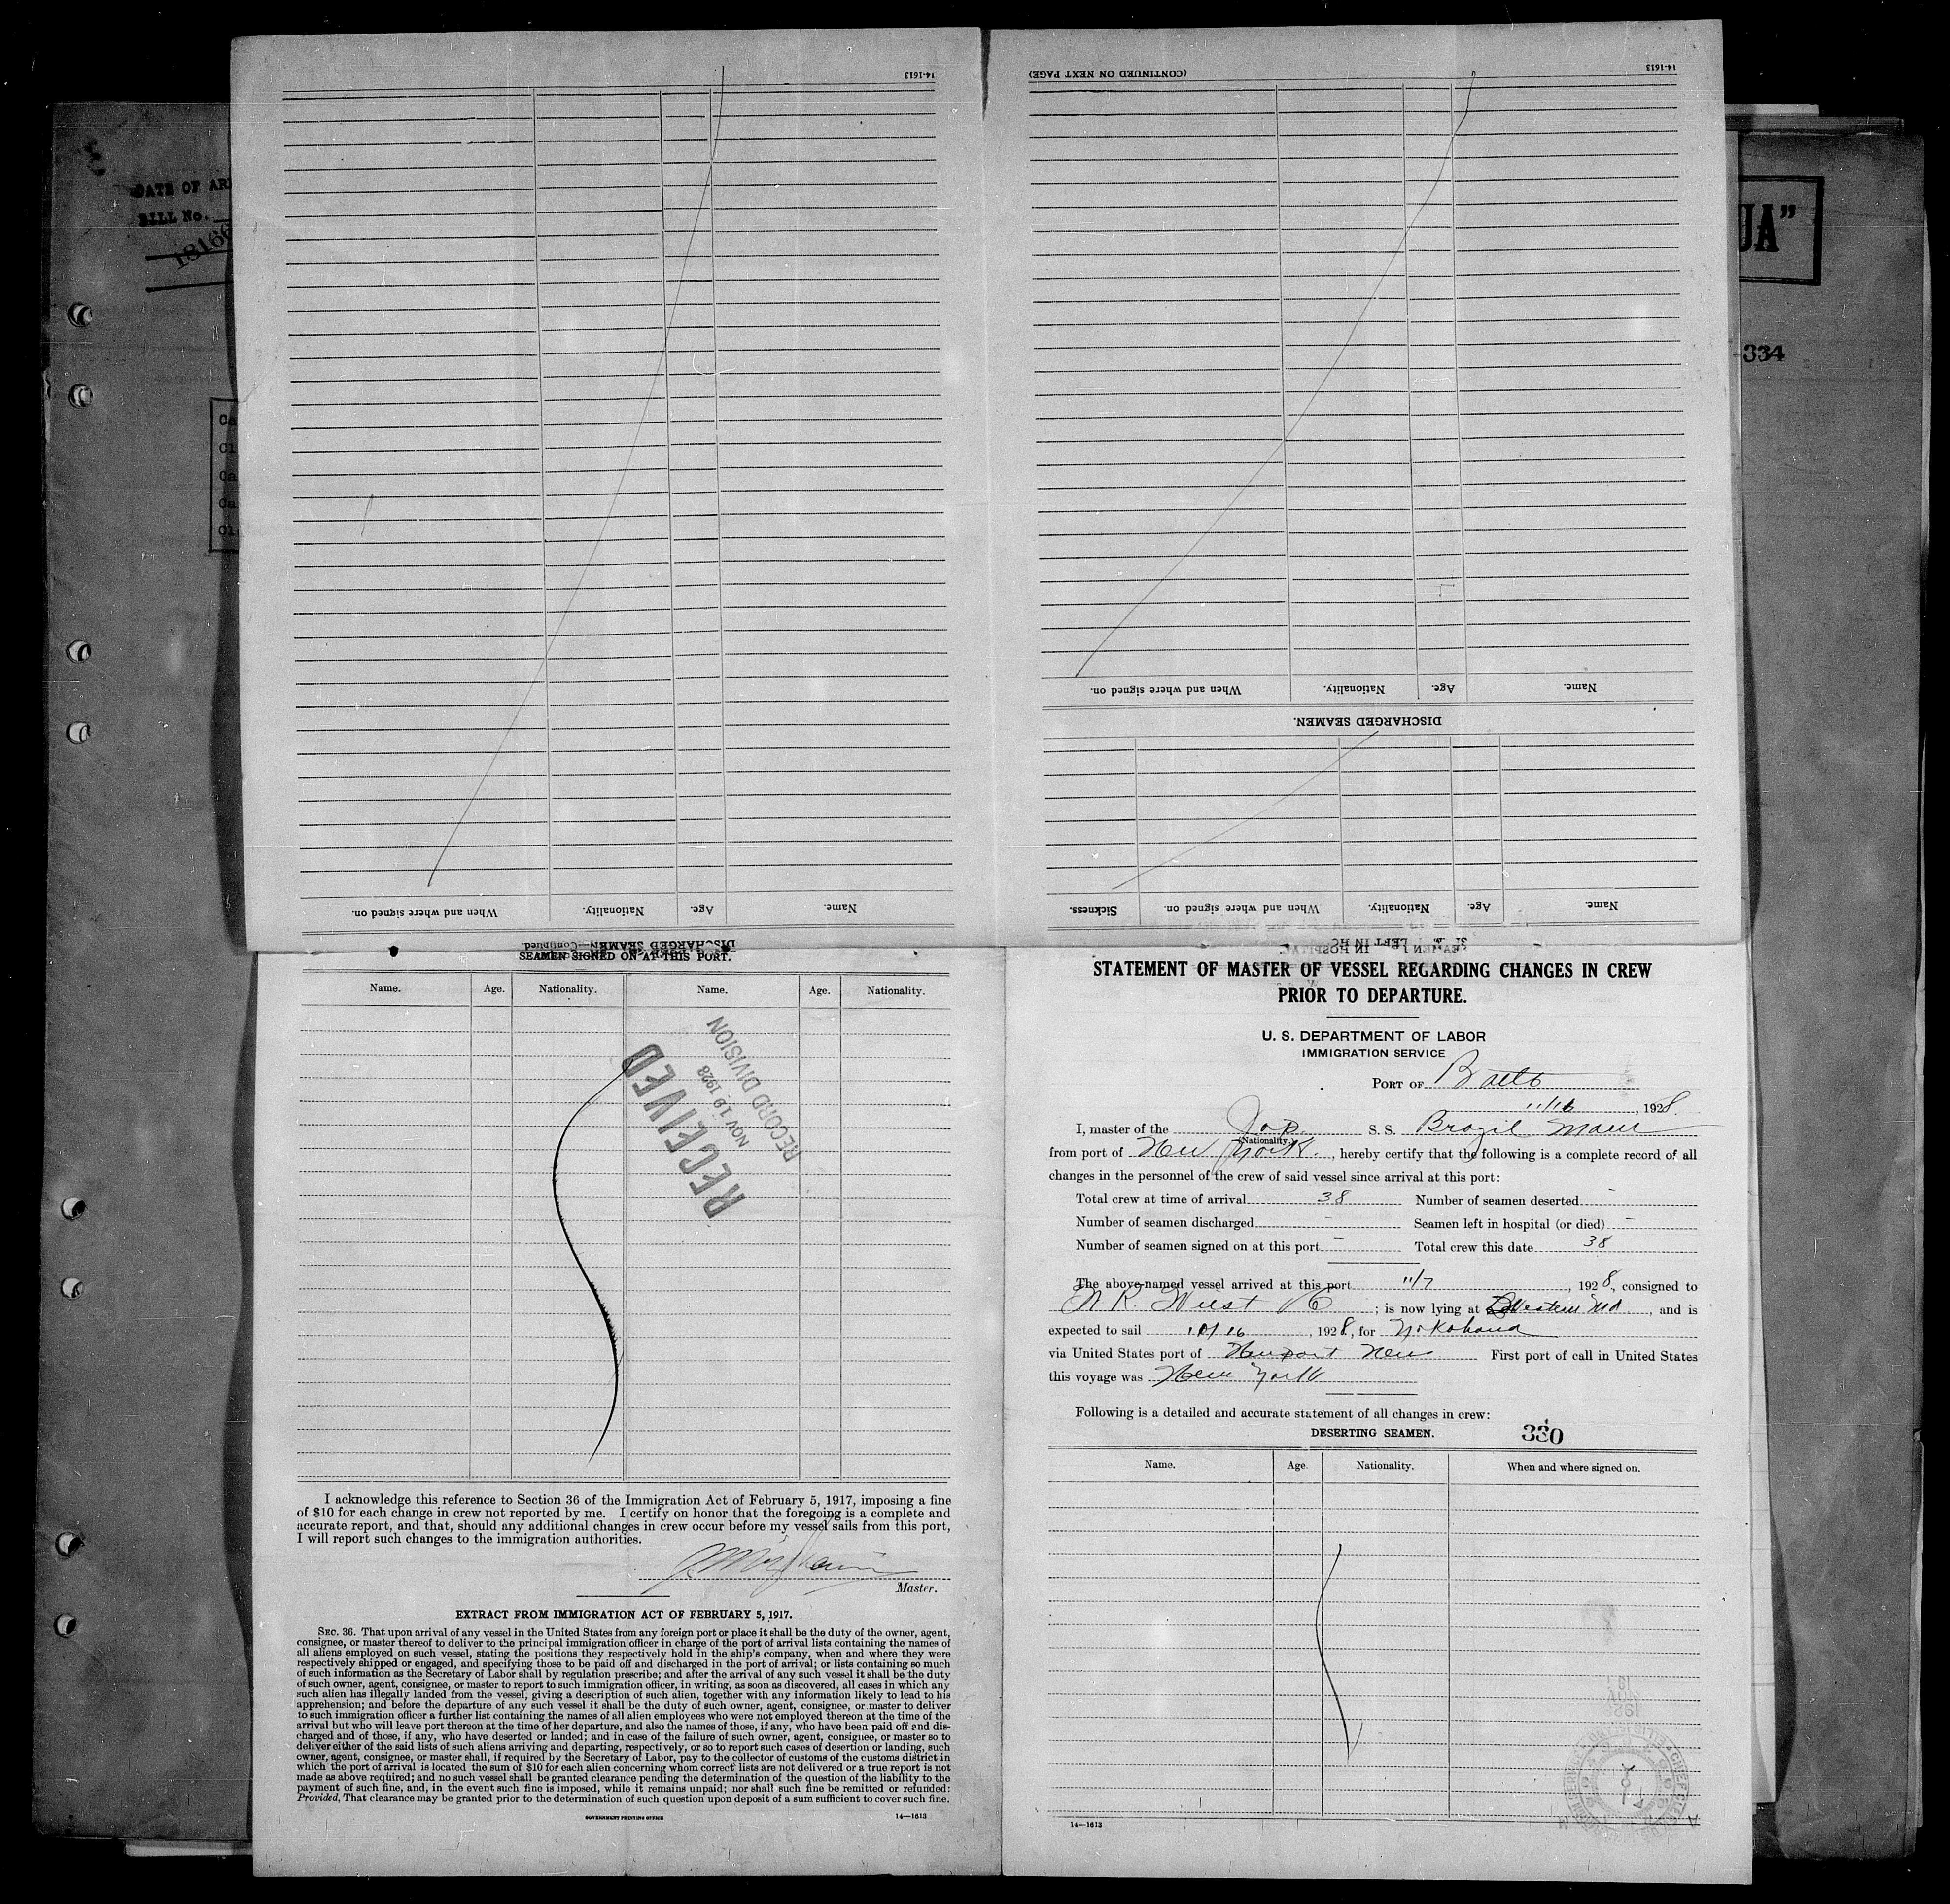 14-1613
(CONTINUED ON NEXT PAGE)
14-1613
DATE OF AR
BILL No.
18166
UA"
334
Ca
Cl
Ca
Ca
Cl
When and where signed on.
Nationality.
Age.
Name.
DISCHARGED SEAMEN.
Name.
Age.
Nationality.
When and where signed on.
Name.
Age.
Nationality.
When and where signed on.
Sickness.
DISCHARGED SEAMEN—Continued.
SEAMEN SIGNED ON AT THIS PORT.
Name. Age. Nationality. Name. Age. Nationality.
RECEIVED
NOV 19 1928
RECORD DIVISION
I acknowledge this reference to Section 36 of the Immigration Act of February 5, 1917, imposing a fine
of $10 for each change in crew not reported by me. I certify on honor that the foregoing is a complete and
accurate report, and that, should any additional changes in crew occur before my vessel sails from this port,
I will report such changes to the immigration authorities.
Master.
EXTRACT FROM IMMIGRATION ACT OF FEBRUARY 5, 1917.
SEC. 36. That upon arrival of any vessel in the United States from any foreign port or place it shall be the duty of the owner, agent,
consignee, or master thereof to deliver to the principal immigration officer in charge of the port of arrival lists containing the names of
all aliens employed on such vessel, stating the positions they respectively hold in the ship's company, when and where they were
respectively shipped or engaged, and specifying those to be paid off and discharged in the port of arrival; or lists containing so much
of such information as the Secretary of Labor shall by regulation prescribe; and after the arrival of any such vessel it shall be the duty
of such owner, agent, consignee, or master to report to such immigration officer, in writing, as soon as discovered, all cases in which any
such alien has illegally landed from the vessel, giving a description of such alien, together with any information likely to lead to his
apprehension; and before the departure of any such vessel it shall be the duty of such owner, agent, consignee, or master to deliver
to such immigration officer a further list containing the names of all alien employees who were not employed thereon at the time of the
arrival but who will leave port thereon at the time of her departure, and also the names of those, if any, who have been paid off and dis-
charged and of those, if any, who have deserted or landed; and in case of the failure of such owner, agent, consignee, or master so to
deliver either of the said lists of such aliens arriving and departing, respectively, or so to report such cases of desertion or landing, such
owner, agent, consignee, or master shall, if required by the Secretary of Labor, pay to the collector of customs of the customs district in
which the port of arrival is located the sum of $10 for each alien concerning whom correct lists are not delivered or a true report is not
made as above required; and no such vessel shall be granted clearance pending the determination of the question of the liability to the
payment of such fine, and, in the event such fine is imposed, while it remains unpaid; nor shall such fine be remitted or refunded:
Provided, That clearance may be granted prior to the determination of such question upon deposit of a sum sufficient to cover such fine.
GOVERNMENT PRINTING OFFICE 14—1613
STATEMENT OF MASTER OF VESSEL REGARDING CHANGES IN CREW
PRIOR TO DEPARTURE.
U. S. DEPARTMENT OF LABOR
IMMIGRATION SERVICE
PORT OF Balto
11/16, 1928.
I, master of the Jap. S. S. Brazil Maru
(Nationality.)
from port of New York, hereby certify that the following is a complete record of all
changes in the personnel of the crew of said vessel since arrival at this port:
Total crew at time of arrival 38 Number of seamen deserted -
Number of seamen discharged - Seamen left in hospital (or died) -
Number of seamen signed on at this port - Total crew this date 38
The above-named vessel arrived at this port 11/7, 1928, consigned to
; is now lying at Western Md, and is
expected to sail 11/16, 1928, for Yokohama
via United States port of Newport News First port of call in United States
this voyage was New York
Following is a detailed and accurate statement of all changes in crew:
DESERTING SEAMEN. 330
Name. Age. Nationality. When and where signed on.
14—1613